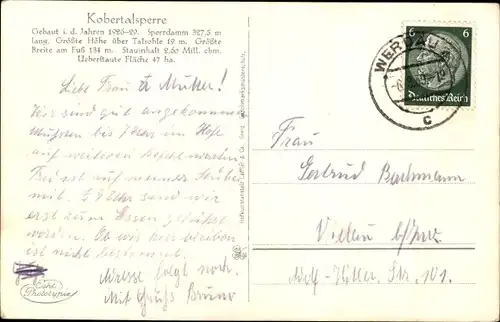 Kobertalsperre
Gebaut i. d. Jahren 1926-29. Sperrdamm 327,5 m
lang. Größte Höhe über Talsohle 19 m. Größte
Breite am Fuß 134 m. Stauinhalt 2,60 Mill. cbm.
Ueberstaute Fläche 47 ha.
Liebe Frau u Mutter!
Wir sind gut angekommen
Mussten bis 7 Uhr im Hofe
auf weiteren Befehl warten
mit. Uhr sind wir
erst zum Essen geführt
worden. Ob wir hier bleiben
ist nicht bestimmt.
Adresse folgt noch.
Mit Gruß Bruno
Echt
Phototypie
WERDAU
c
6 6
Deutsches Reich
Frau
Gertrud Bachmann
Adolf-Hitler. Str. 101.